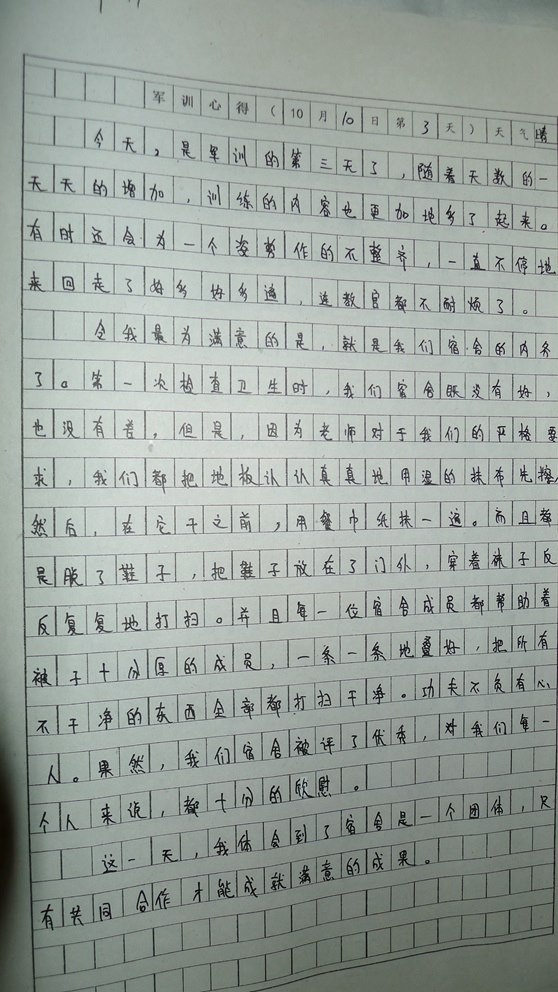 军训心得（10月10日第3天）天气晴
今天，是军训的第三天了，随着天数的一
天天的增加，训练的内容也更加地多了起来。
有时还会为一个姿势作的不整齐，一直不停地
来回走了好多好多遍，连教官都不耐烦了。
令我最为满意的是，就是我们宿舍的内务
了。第一次检查卫生时，我们宿舍既没有好，
也没有差，但是，因为老师对于我们的严格要
求，我们都把地板认认真真地用湿的抹布先擦，
然后，在它干之前，用餐巾纸抹一遍。而且都
是脱了鞋子，把鞋子放在了门外，穿着袜子反
反复复地打扫。并且每一位宿舍成员都帮助着
被子十分厚的成员，一条一条地叠好，把所有
不干净的东西全部都打扫干净。功夫不负有心
人。果然，我们宿舍被评了优秀，对我们每一
个人来说，都十分的欣慰。
这一天，我体会到了宿舍是一个团体，只
有共同合作才能成就满意的成果。